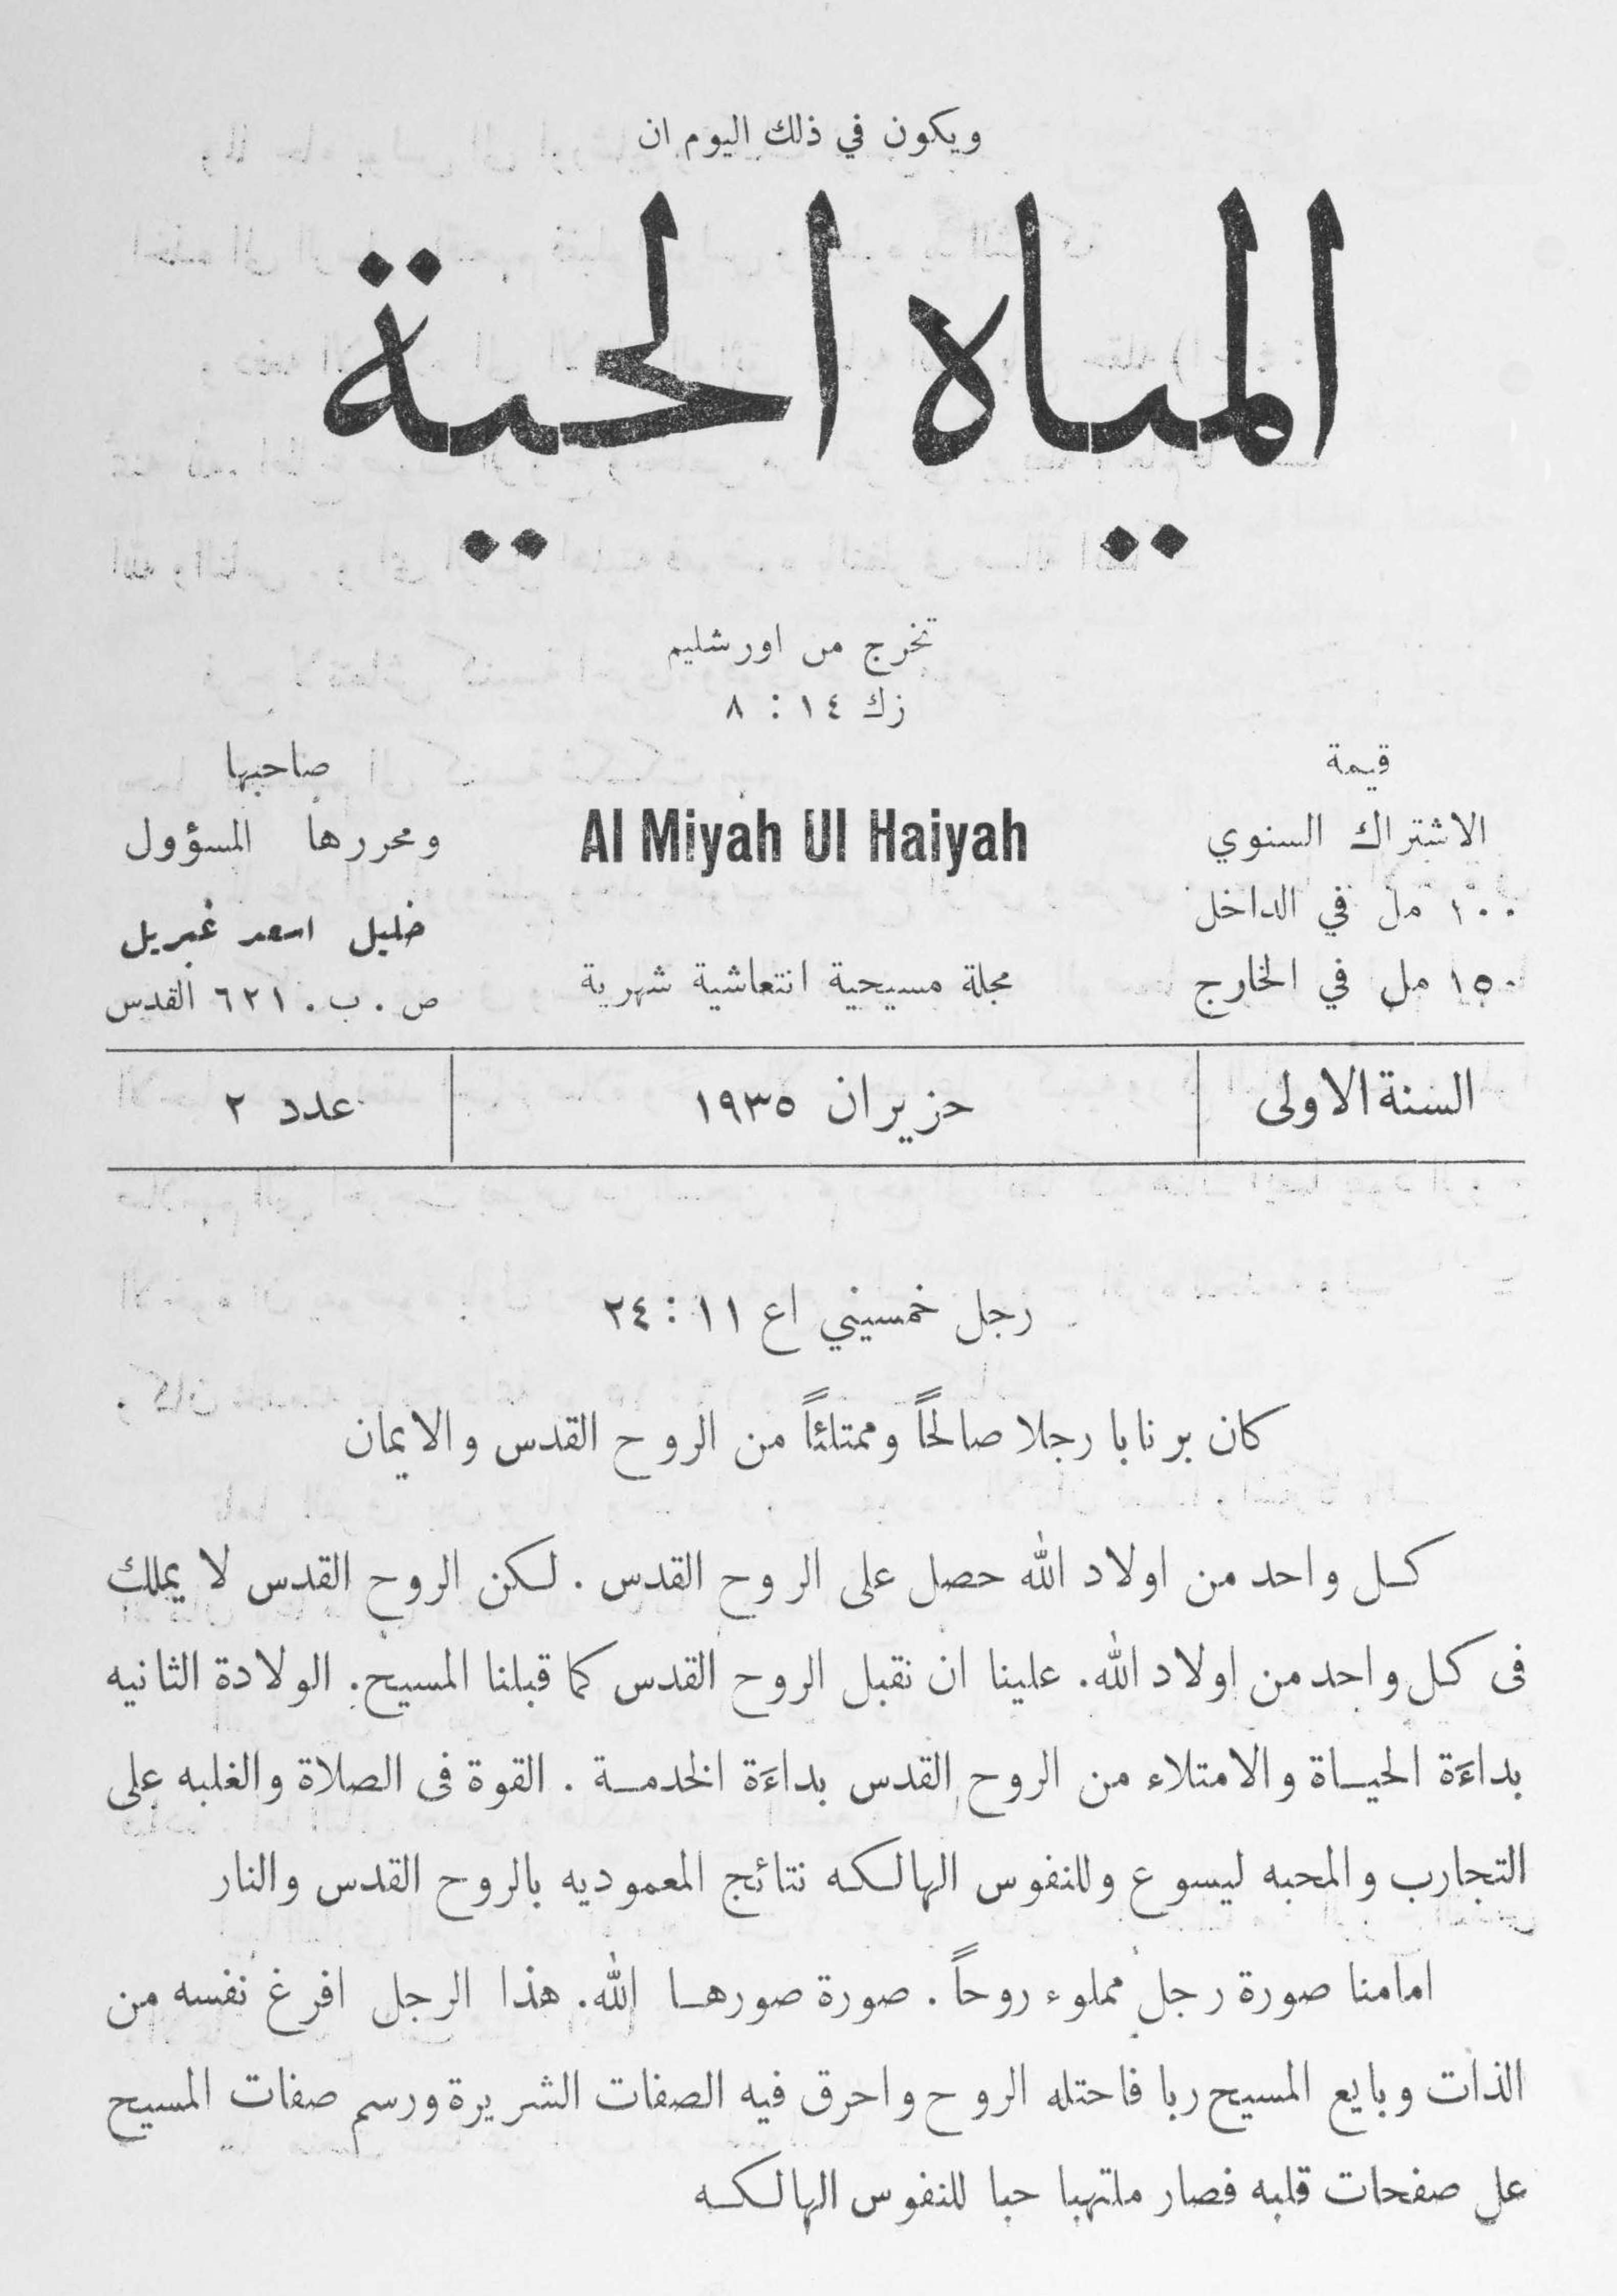 ويكون في ذلك اليوم ان
المياه الحية
تخرج من اورشليم
زك ١٤ : ٨
قيمة
الاشتراك السنوي
١٠٠ مل في الداخل
١٥٠ مل في الخارج
Al Miyah Ul Haiyah
مجلة مسيحية انتعاشية شهرية
صاحبها
ومحررها المسؤول
خليل اسعد غبريل
ص . ب . ٦٢١ القدس
السنة الاولى
حزيران ١٩٣٥
عدد ٢
رجل خمسيني اع ١١ : ٢٤
كان برنابا رجلا صالحاً وممتلئاً من الروح القدس والايمان
كل واحد من اولاد الله حصل على الروح القدس . لكن الروح القدس لا يملك
فى كل واحد من اولاد الله. علينا ان نقبل الروح القدس كما قبلنا المسيح. الولادة الثانيه
بداءَة الحياة والامتلاء من الروح القدس بداءَة الخدمة . القوة فى الصلاة والغلبه على
التجارب والمحبه ليسوع وللنفوس الهالكه نتائج المعموديه بالروح القدس والنار
امامنا صورة رجل مملوء روحاً . صورة صورها الله. هذا الرجل افرغ نفسه من
الذات وبايع المسيح ربا فاحتله الروح واحرق فيه الصفات الشريرة ورسم صفات المسيح
عل صفحات قلبه فصار ملتهبا حبا للنفوس الهالكه